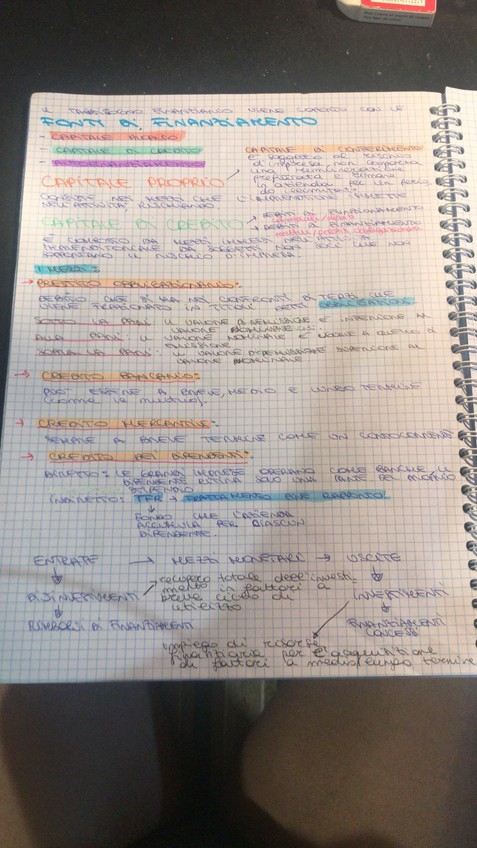 IL FABBISOGNO FINANZIARIO VIENE COPERTO CON LE
FONTI DI FINANZIAMENTO
- CAPITALE PROPRIO
- CAPITALE DI CREDITO
- AUTOFINANZIAMENTO
CAPITALE DI CONFERIMENTO
È SOGGETTO AL RISCHIO
D'IMPRESA, NON COMPORTA
UNA REMUNERAZIONE
PREFISSATA E RIMANE
IN AZIENDA PER UN PERIO
DO
CAPITALE PROPRIO
CONSISTE NEI MEZZI CHE L'IMPRENDITORE IMMETTE
NELL'ATTIVITÀ RISCHIANDO
CAPITALE DI CREDITO
DEBITI DI FUNZIONAMENTO
DEBITI DI FINANZIAMENTO
È COSTITUITO DA MEZZI IMMESSI NELL'ATTIVITÀ
IMPRENDITORIALE DA SOGGETTI NON SOCI CHE NON
SOPPORTANO IL RISCHIO D'IMPRESA.
I MEZZI:
→ PRESTITO OBBLIGAZIONARIO:
DEBITO CHE SI HA NEI CONFRONTI DI TERZI CHE
VIENE FRAZIONATO IN TITOLI DETTI OBBLIGAZIONI
SOTTO LA PARI: IL VALORE DI EMISSIONE È INFERIORE AL
VALORE NOMINALE
ALLA PARI: IL VALORE NOMINALE È UGUALE A QUELLO DI
EMISSIONE
SOPRA LA PARI: IL VALORE D'EMISSIONE SUPERIORE AL
VALORE NOMINALE
→ CREDITO BANCARIO:
PUÒ ESSERE A BREVE, MEDIO E LUNGO TERMINE
(COME IL MUTUO).
→ CREDITO MERCANTILE:
SEMPRE A BREVE TERMINE COME UN
→ CREDITO DEI DIPENDENTI:
DIRETTO: LE GRANDI IMPRESE OPERANO COME BANCHE, IL
DIPENDENTE RITIRA SOLO UNA PARTE DEL PROPRIO
STIPENDIO
INDIRETTO: TFR → TRATTAMENTO FINE RAPPORTO
FONDO CHE L'AZIENDA
ACCUMULA PER CIASCUN
DIPENDENTE.
ENTRATE → MEZZI MONETARI → USCITE
DISINVESTIMENTI
recupero totale dell'investi-
mento in fattori a
breve ciclo di
utilizzo
INVESTIMENTI
RIMBORSI DI FINANZIAMENTI
FINANZIAMENTI
CONCESSI
impiego di risorse
finanziarie per l'acquisizione
di fattori a medio/lungo termine